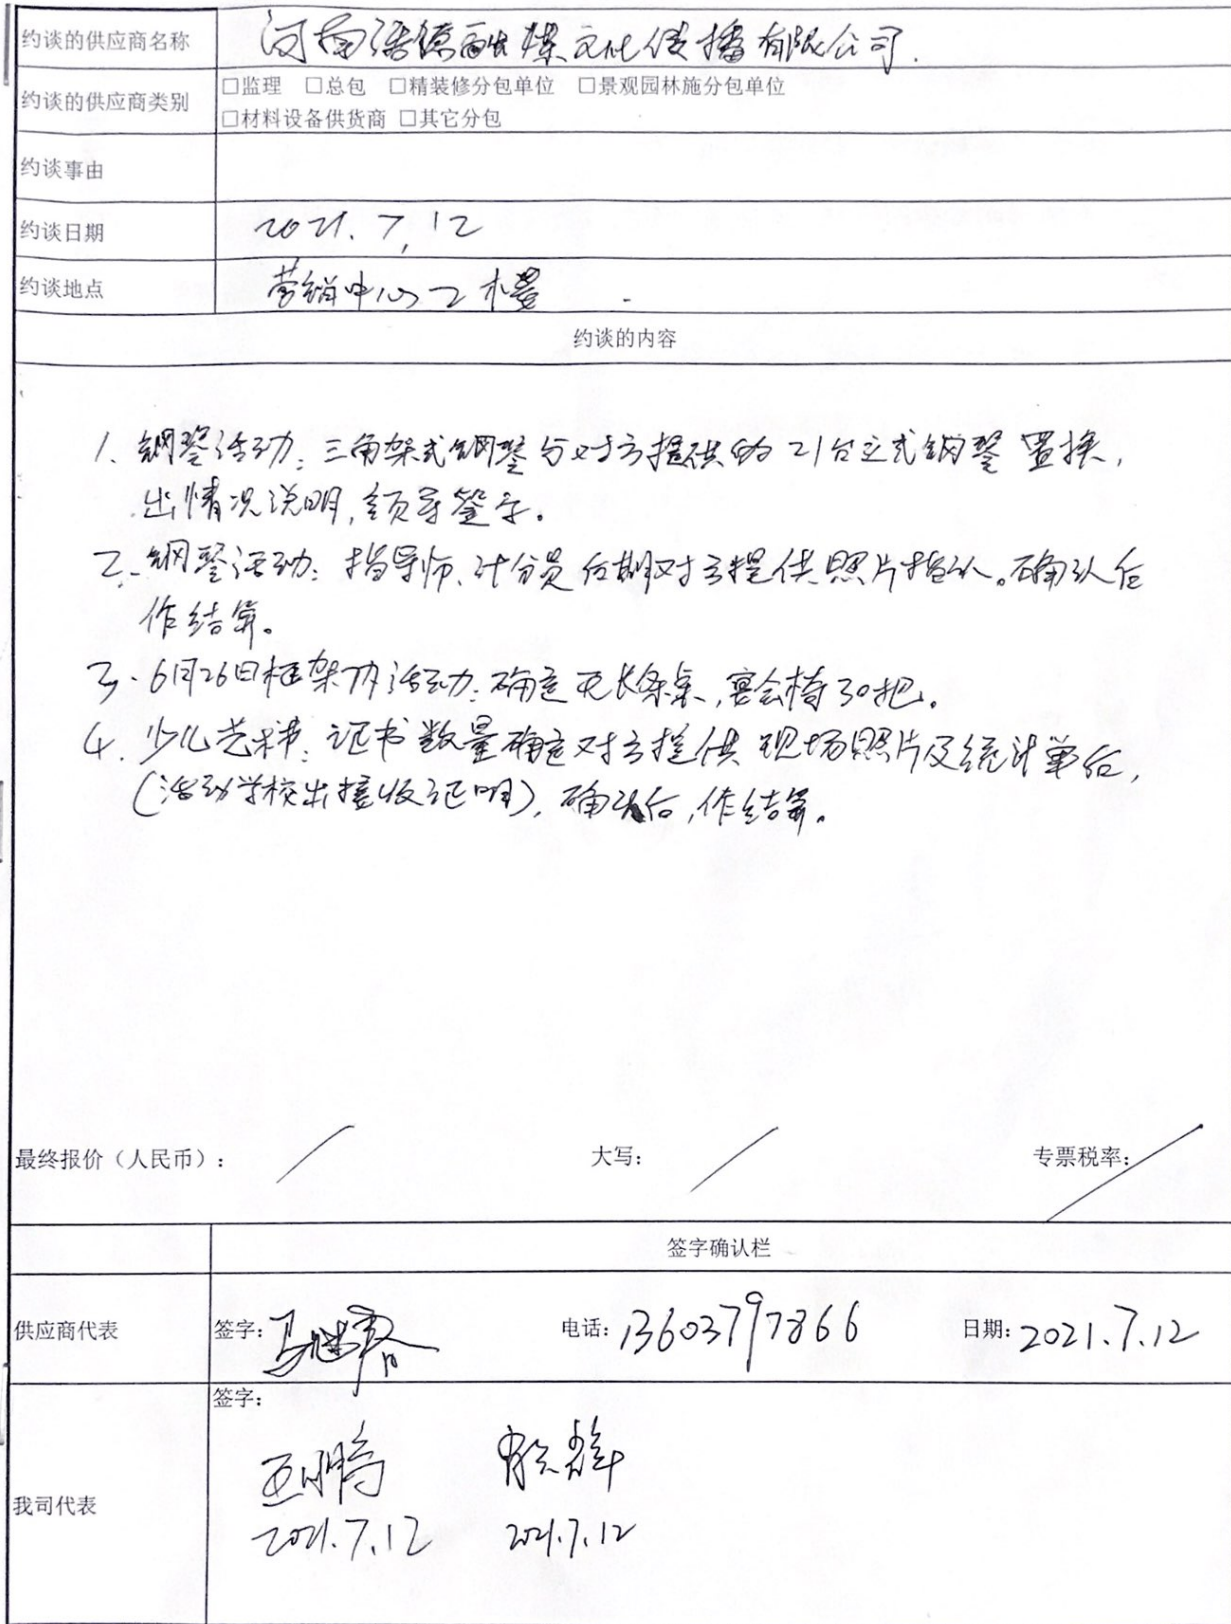 约谈的供应商名称 河南语德融媒文化传播有限公司.
约谈的供应商类别 □监理 □总包 □精装修分包单位 □景观园林施分包单位
□材料设备供货商 □其它分包
约谈事由
约谈日期 2021.7.12
约谈地点 营销中心二楼
约谈的内容
1. 钢琴活动:三角架式钢琴与对方提供的21台立式钢琴置换,
出情况说明,领导签字。
2. 钢琴活动:指导师、计分员后期对方提供照片指认。确认后
作结算。
3. 6月26日框架内活动:确定无长条桌,宴会椅30把。
4. 少儿艺术节:证书数量确定对方提供现场照片及统计单后,
(活动学校出接收证明),确认后,作结算。
最终报价(人民币): 大写: 专票税率:
签字确认栏
供应商代表 签字: 电话:13603797866 日期:2021.7.12
签字:
我司代表
2021.7.12 2021.7.12